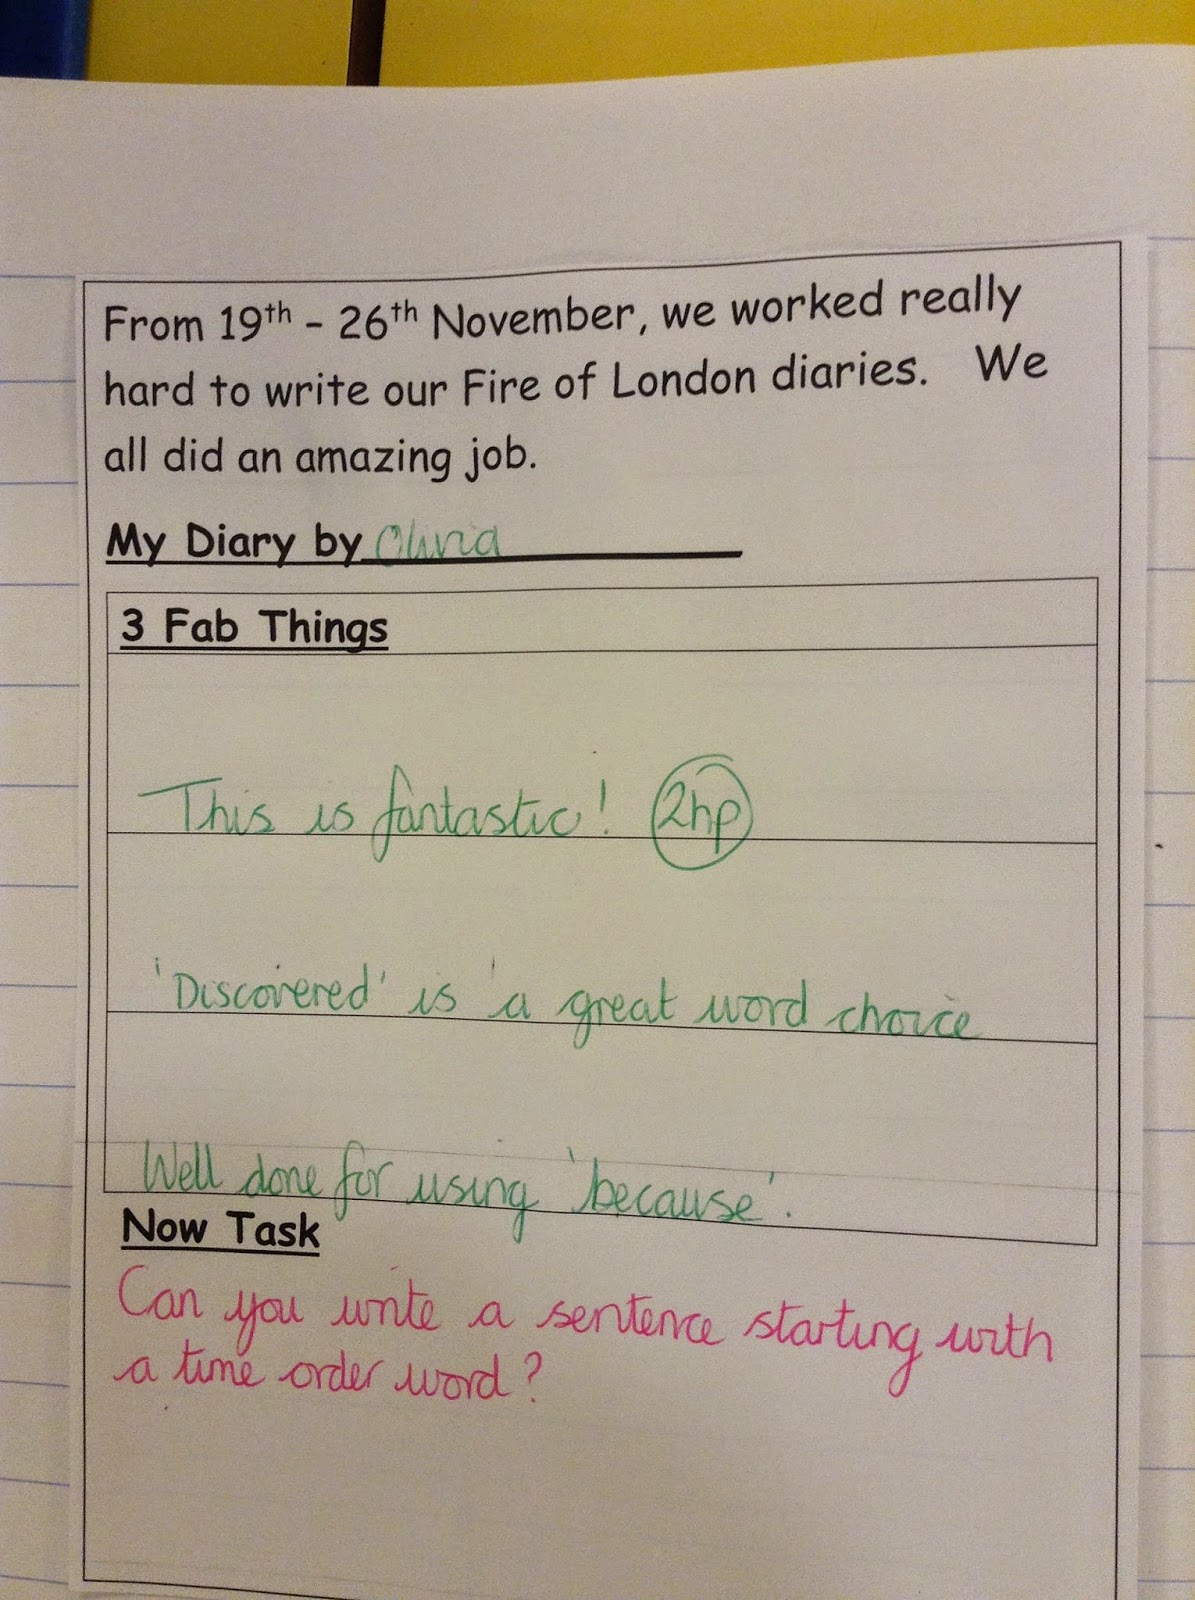 From 19th - 26th November, we worked really
hard to write our Fire of London diaries. We
all did an amazing job.
My Diary by Olivia
3 Fab Things
This is fantastic! 2hp
'Discovered' is a great word choice
Well done for using 'because'.
Now Task
Can you write a sentence starting with
a time order word?